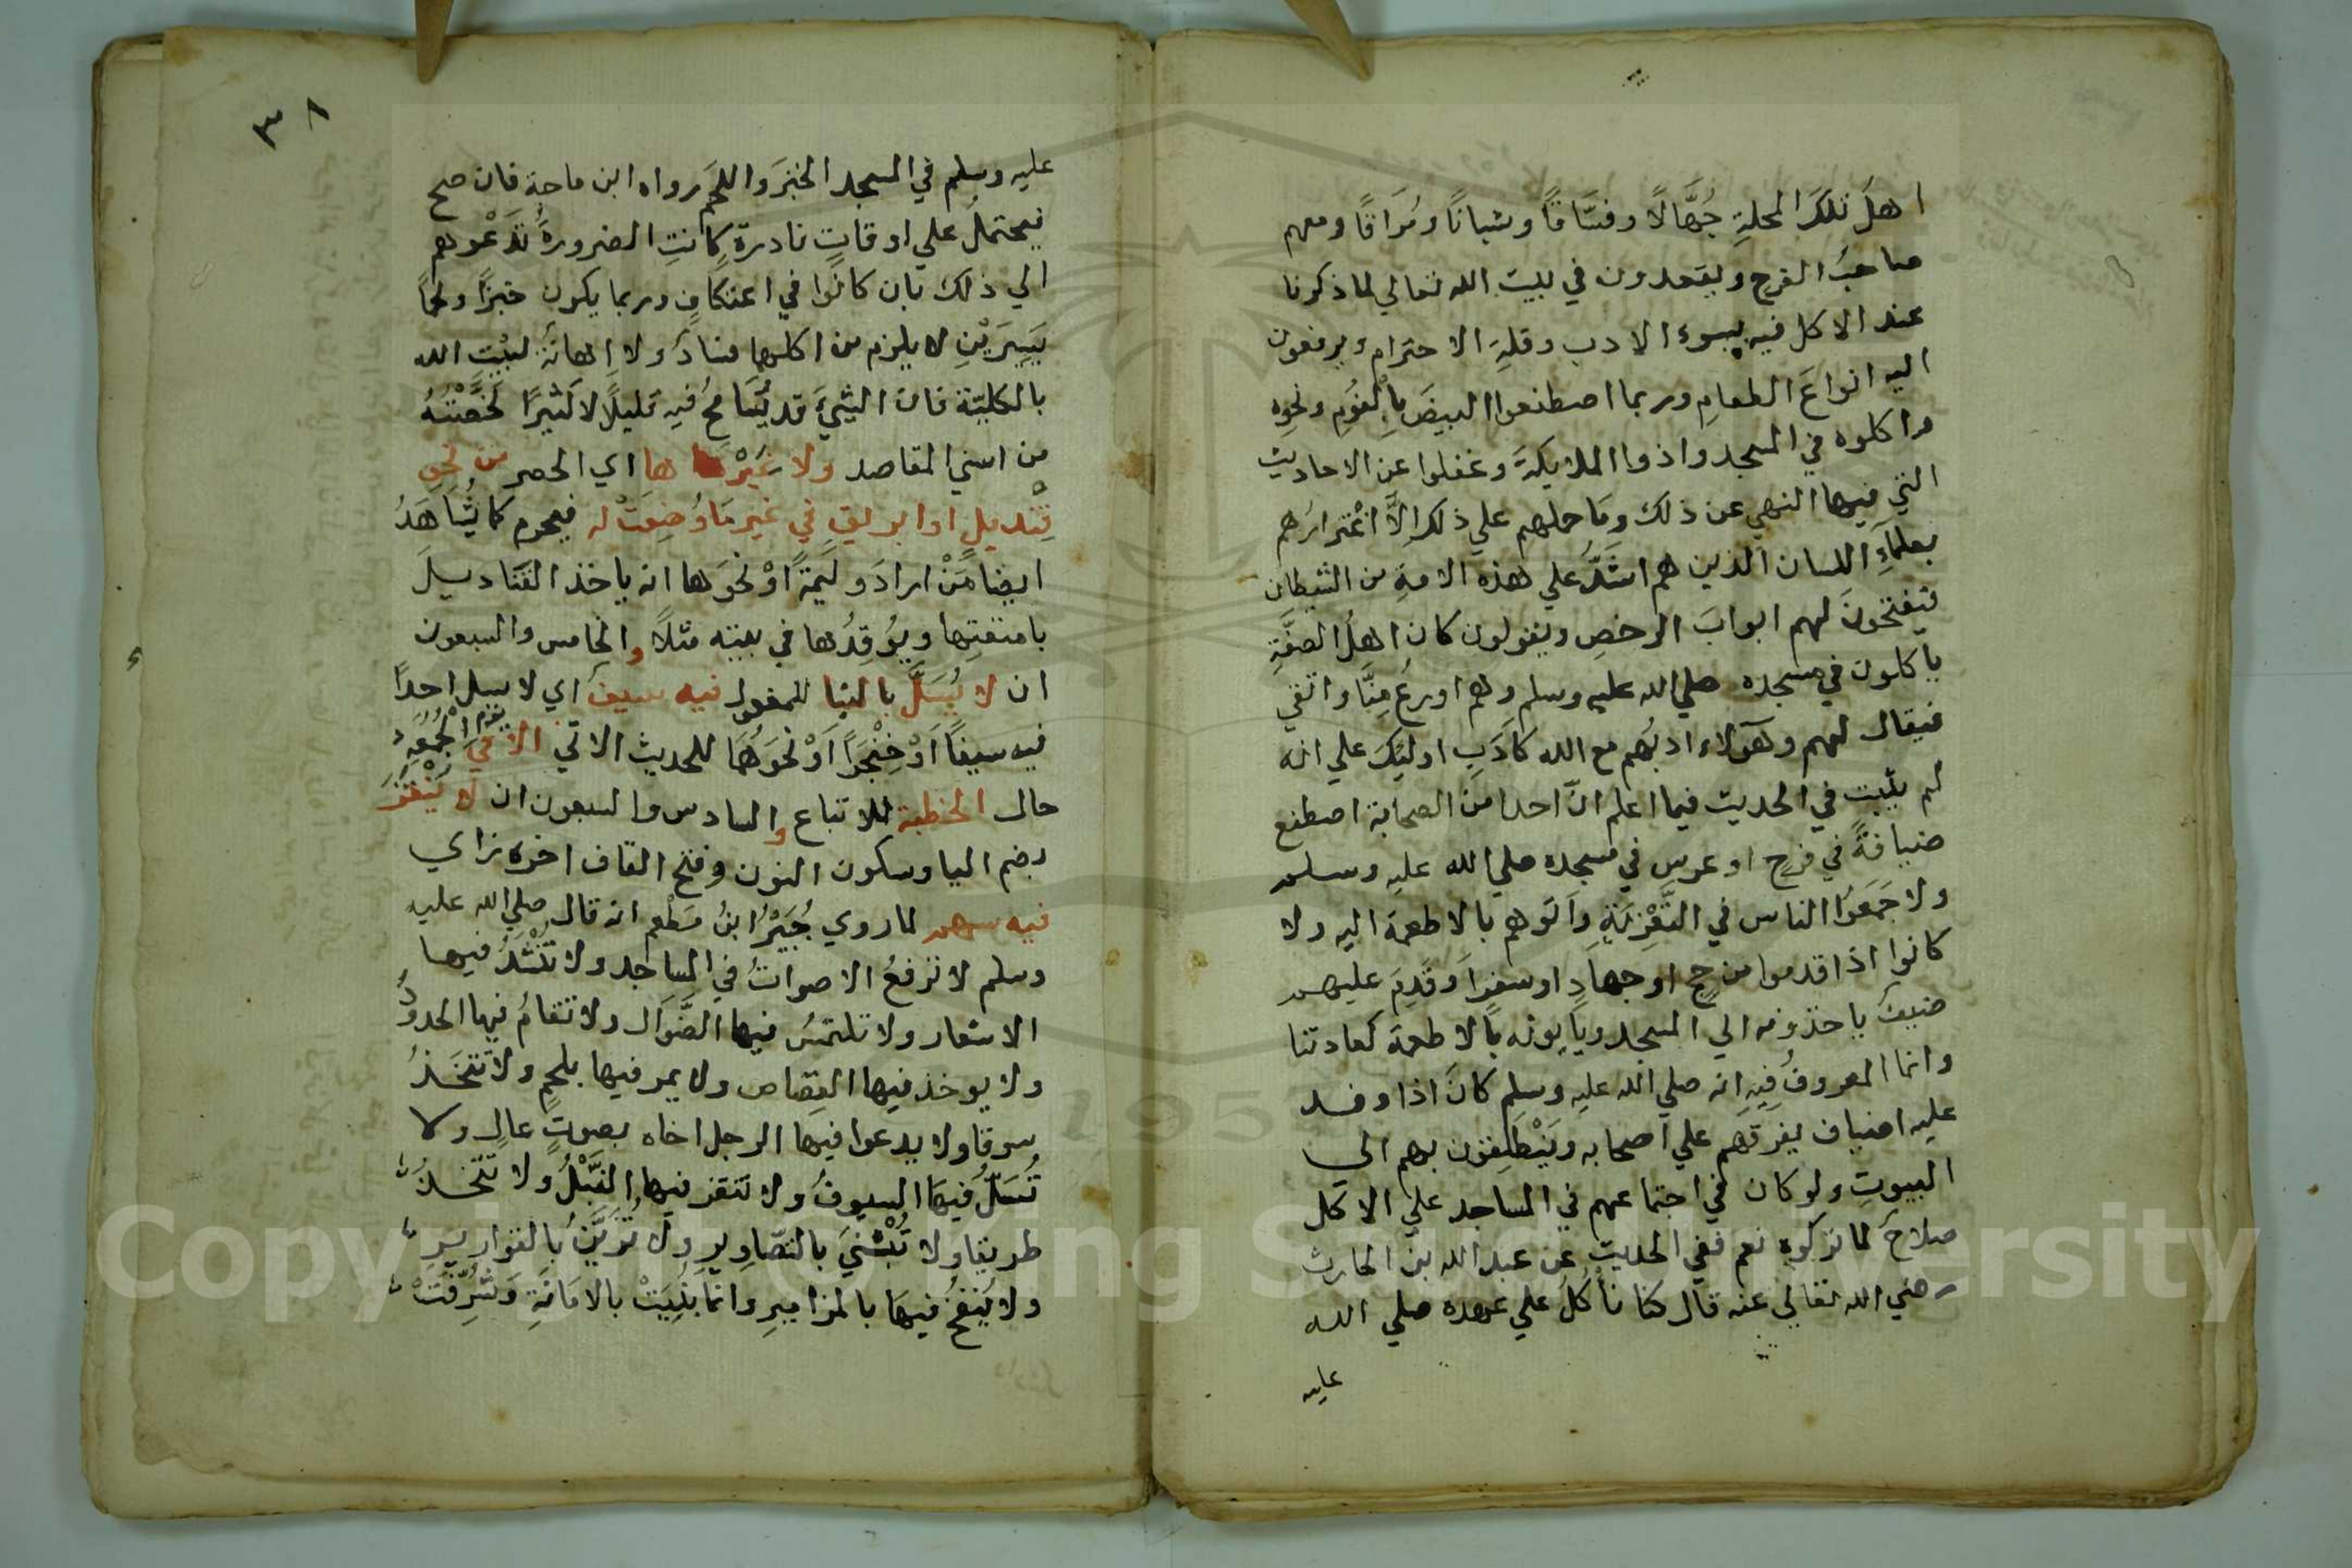 اهلَ تلك المحلةِ جُهَّالًا وفسَّاقًا وشبانًا ومُرَاقًا ومعهم
صاحبُ الفرح ويقعدون في بيت الله تعالي لما ذكرنا
عند الاكل فيه بسوء الادب وقلةِ الاحترام ويرفعون
اليه انواعَ الطعامِ وربما اصطنعوا البيضَ بالفُومِ ونحوِه
واكلوه في المسجد واذوا الملايكةَ وغفلوا عن الاحاديث
التي فيها النهي عن ذلك ومَا حملهم علي ذلك اِلَّا اغْترارُهم
بعلمآءِ اللسان الذين هم اشَدُّ علي هذه الامةِ من الشيطان
فيفتحونَ لهم ابوابَ الرخصِ ويقولون كان اهلُ الصفَّةِ
ياكلون في مسجده صلي الله عليه وسلم وهم اورعُ مِنَّا واتقي
فيقال لهم وهَؤلاء ادبُهم مع الله كاَدَبِ اوليِكَ علي انه
لم يثبت في الحديث فيما اعلم انَّ احدا من الصحابة اصطنع
ضيافةً في فرحٍ او عرسٍ في مسجده صلي الله عليه وسلم
ولا جَمَعَوُا الناس في التَّعْزِيَةِ واَتَوهم بالاطعمة اليه ولا
كانوا اذا قدموا من حجٍ او جهادٍ او سفرٍ اَو قَدِمَ عليهم
ضيفٌ ياخذونه الي المسجد وياَتونه باَلاطعمة كعادتنا
وانما المعروفُ فيِهِ انه صلي الله عليه وسلم كانَ اذا وفد
عليه اضياف يفرقهم علي اصحابه ويَنْطَلِقون بهم الي
البيوتِ ولو كان في اجتماعهم في المساجد علي الاكل
صلاحٌ لما تركوه نعم ففي الحديث عن عبد الله بن الحارث
رضي الله تعالي عنه قال كنا نأكلُ علي عهده صلي الله
عليه
٣٨
عليه وسلم في المسجد الخبزَ واللحمَ رواه ابن ماجة فان صح
فيحتملُ علي اوقاتٍ نادرةٍ كانتِ الضرورةُ تَدْعُوهم
الي ذلك بان كانُوا في اعتكافٍ وربما يكون خبزًا ولحمًا
يَسِيرَيْنِ لا يلزم من اكلهما فسادٌ ولا اِهانَةٌ لبيْتِ الله
بالكليّة فان الشيَّ قد يُسَامحُ فيه قليلًا لاكثيرًا لخِسَّتِهُ
من اسني المقاصد ولا غَيْرُها اي الحصر من نحو
قِنْديلٍ او ابريقٍ في غيرِ مَا وُضِعَتْ له فيحرم كما يُشَاهَدُ
ايضا مَنْ ارادَ وليَمةً اوْ نحْوَها انه ياخذ القنَاديلَ
بامتعَتِها ويُوقِدُها في بيته مثلًا والخامس والسبعون
ان لا يُسَلَّ بالبنا للمفعول فيه سيفٌ اي لا يسل احدًا
فيه سيفًا اَوْ خِنْجرًا اَوْ نحْوَهُما للحديث الاتي الا في يوم الجُمُعَةِ
حال الخطبة للاتباع والسادس والسبعون ان لا يُنْقَزَ
بضم اليا وسكون النون وفتح القاف اخره زاي
فيه سهم لما روي جُبَيْرُ ابنُ مطعم انه قال صلي الله عليه
وسلم لا ترفعُ الاصواتُ في المساجد ولا تُنْشَدُ فيها
الاشعار ولا تلتمسُ فيها الضَّوَال ولا تقامُ فيها الحدودُ
ولا يوخذ فيها القِصَاص ولا يمر فيها بلحمٍ ولا تتخَذُ
سوقا ولا يدعوا فيها الرجل اخاه بصوتٍ عالٍ ولا
تُسَلُّ فيهَا السيوفُ ولا تنقز فيها النَّبْلُ ولا تتْخذُ
طريقا ولا تُبْنيَ بالتصَاوِيرِ ولا تُزَيَّنُ بالقوارِيرِ
ولا يُنفخُ فيهَا بالمزاميرِ وانمَا بُنِيَتْ بالامَانَةِ وَشُرِّفَتْ
Copyright © King Saud University
195